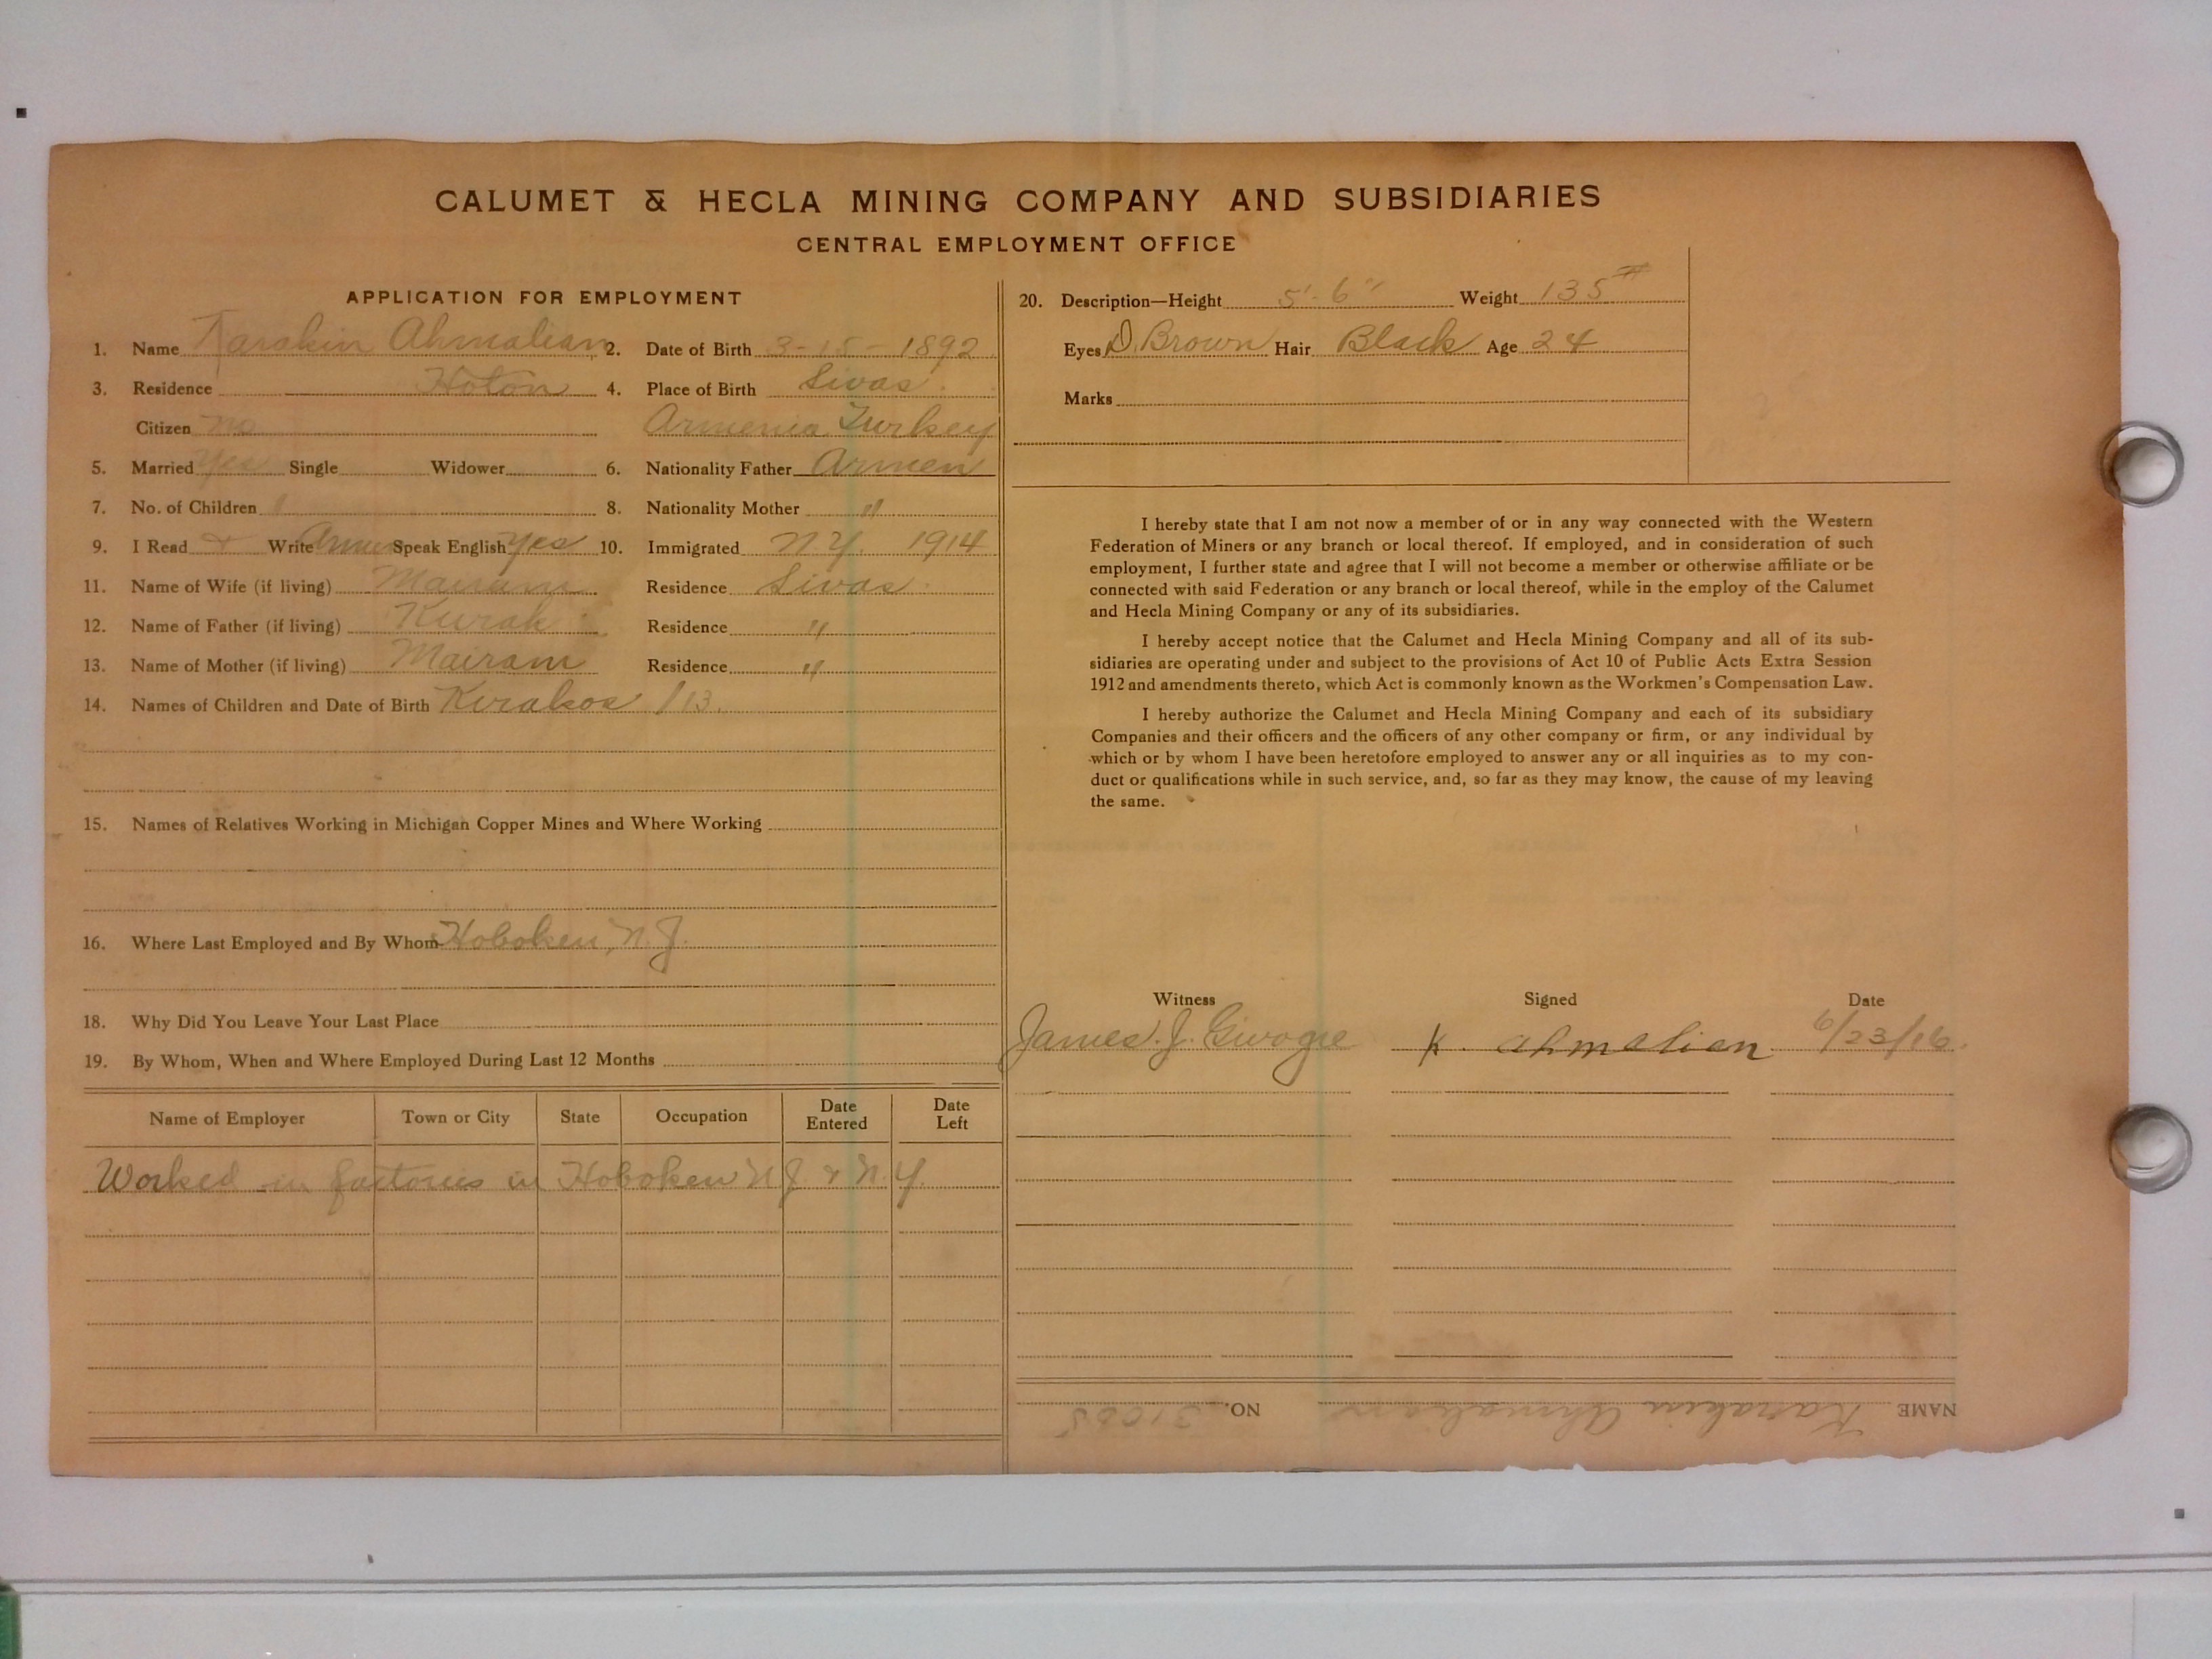 CALUMET & HECLA MINING COMPANY AND SUBSIDIARIES
CENTRAL EMPLOYMENT OFFICE
APPLICATION FOR EMPLOYMENT
1. Name Karakin Ahmalian 2. Date of Birth 3-15-1892
3. Residence Hoton 4. Place of Birth Sivas
Citizen no Armenia Turkey
5. Married Yes Single Widower 6. Nationality Father Armen
7. No. of Children 1 8. Nationality Mother "
9. I Read & Write Armen Speak English Yes 10. Immigrated N.Y. 1914
11. Name of Wife (if living) Mairam Residence Sivas
12. Name of Father (if living) Kurak Residence "
13. Name of Mother (if living) Mairam Residence "
14. Names of Children and Date of Birth Kirakos /13.
15. Names of Relatives Working in Michigan Copper Mines and Where Working
16. Where Last Employed and By Whom Hoboken, N.J.
18. Why Did You Leave Your Last Place
19. By Whom, When and Where Employed During Last 12 Months
Name of Employer Town or City State Occupation Date Entered Date Left
Worked in factories in Hoboken N J & N.Y.
20. Description—Height 5'-6" Weight 135#
Eyes D. Brown Hair Black Age 24
Marks
I hereby state that I am not now a member of or in any way connected with the Western
Federation of Miners or any branch or local thereof. If employed, and in consideration of such
employment, I further state and agree that I will not become a member or otherwise affiliate or be
connected with said Federation or any branch or local thereof, while in the employ of the Calumet
and Hecla Mining Company or any of its subsidiaries.
I hereby accept notice that the Calumet and Hecla Mining Company and all of its sub-
sidiaries are operating under and subject to the provisions of Act 10 of Public Acts Extra Session
1912 and amendments thereto, which Act is commonly known as the Workmen's Compensation Law.
I hereby authorize the Calumet and Hecla Mining Company and each of its subsidiary
Companies and their officers and the officers of any other company or firm, or any individual by
which or by whom I have been heretofore employed to answer any or all inquiries as to my con-
duct or qualifications while in such service, and, so far as they may know, the cause of my leaving
the same.
Witness Signed Date
James J. K. ahmalian 6/23/16.
NAME Karakin Ahmalian NO.